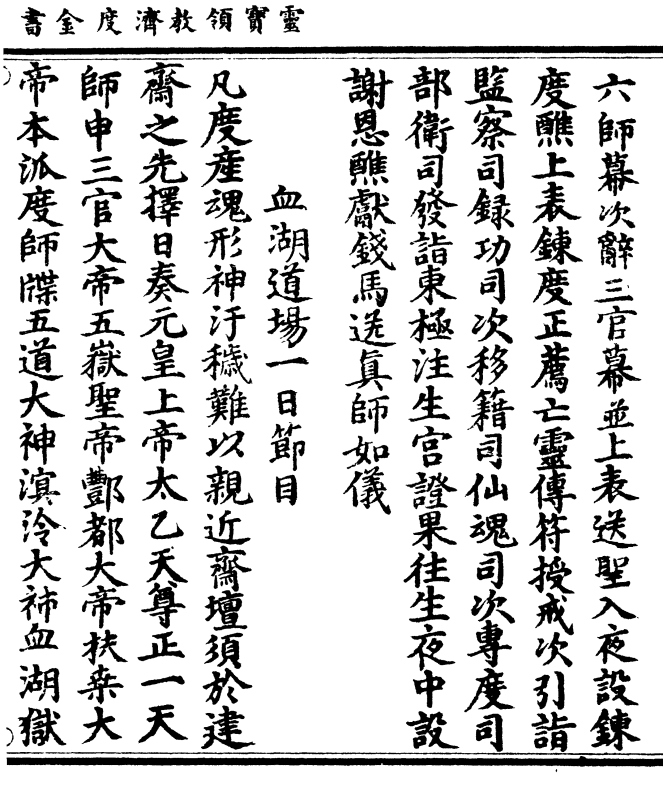 靈寶領教濟度金書
六師幕次辭三官幕並上表送聖入夜設鍊
度醮上表鍊度正薦亡靈傳符授戒次引詣
監察司錄功司次移籍司仙魂司次專度司
部衛司發詣東極注生宮證果往生夜中設
謝恩醮獻錢馬送真師如儀
血湖道場一日節目
凡度産魂形神汙穢難以親近齋壇須於建
齋之先擇日奏元皇上帝太乙天尊正一天
師申三官大帝五嶽聖帝酆都大帝扶桒大
帝本派度師牒五道大神溟泠大神血湖獄